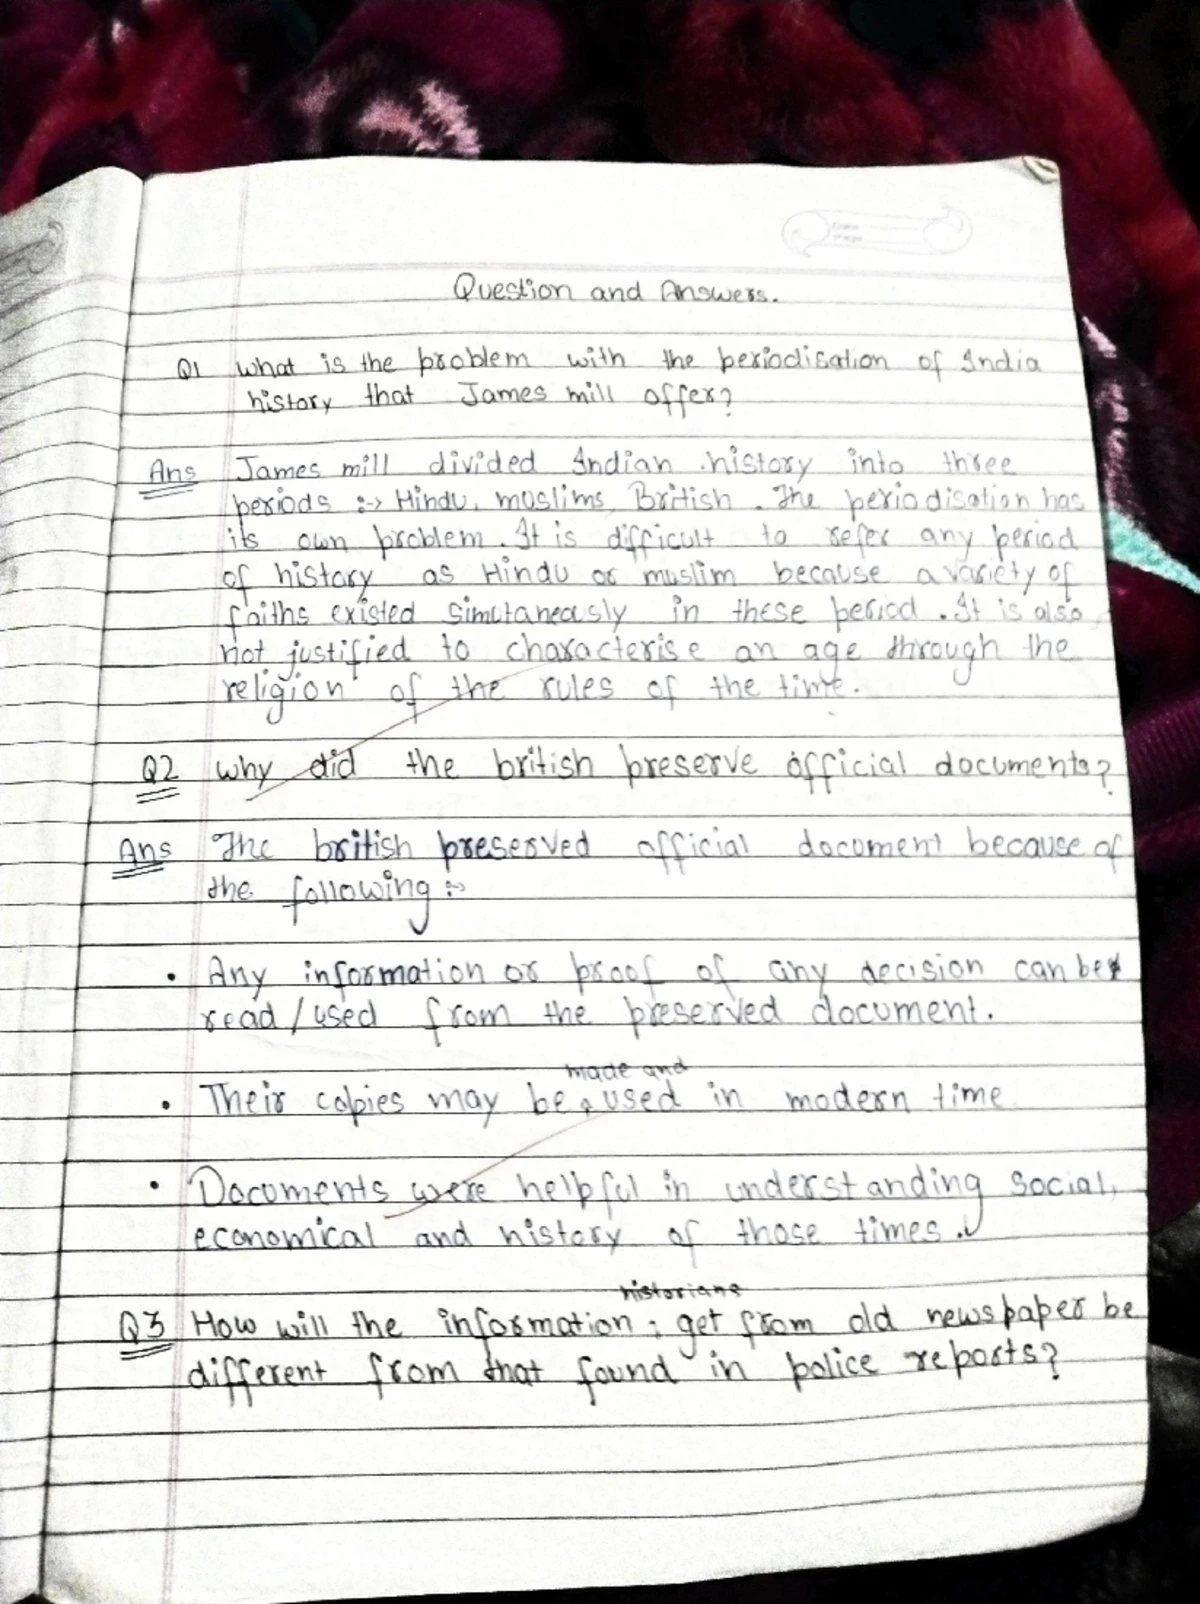 Question and Answers.
Q1 what is the problem with the periodisation of India
history that James mill offer?
Ans James mill divided Indian history into three
periods :-> Hindu, muslims, British. The periodisation has
its own problem. It is difficult to refer any period
of history as Hindu or muslim because a variety of
faiths existed simutaneously in these period. It is also
not justified to characterise an age through the
religion of the rules of the time.
Q2 why did the british preserve official documents?
Ans The british preserved official document because of
the following :->
• Any information or proof of any decision can be
read/used from the preserved document.
made and
• Their copies may be used in modern time
• Documents were helpful in understanding social,
economical and history of those times.
historians
Q3 How will the information, get from old newspaper be
different from that found in police reports?